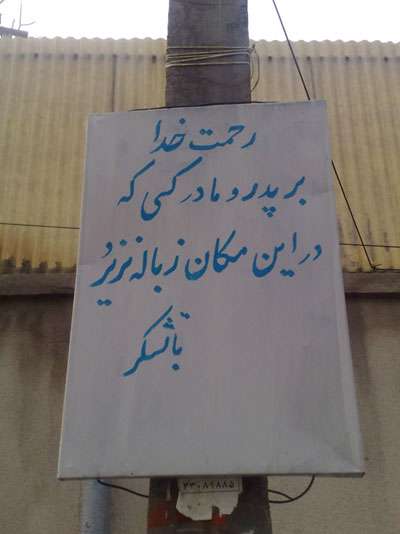 رحمت خدا
بر پدر و مادر کسی که
در این مکان زباله نریزد
باتشکر
۳۳۰۸۹۸۸۵